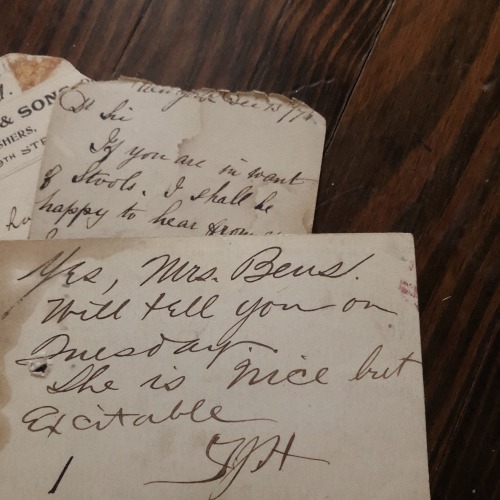 & SONS
SHERS,
9TH STRE
New York Dec 13
Dr Sir
If you are in want
of Stools. I shall be
happy to hear from
Yes, Mrs. Bens.
Will tell you on
Tuesday.
She is nice but
Excitable
TJH
1